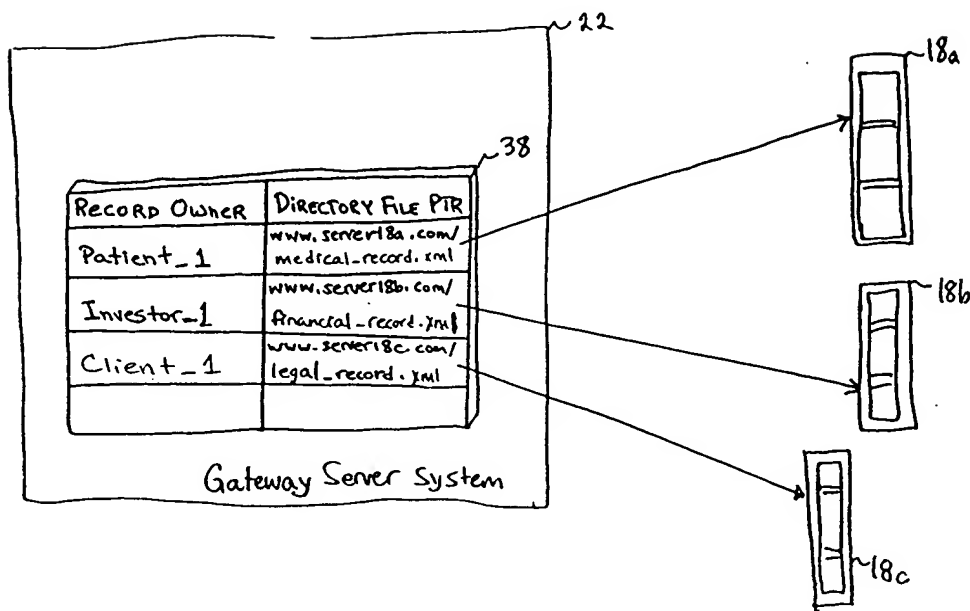 22
18a
38
RECORD OWNER
DIRECTORY FILE PTR
Patient_1
www.server18a.com/
medical_record.xml
Investor_1
www.server18b.com/
financial_record.xml
Client_1
www.server18c.com/
legal_record.xml
Gateway Server System
18b
18c